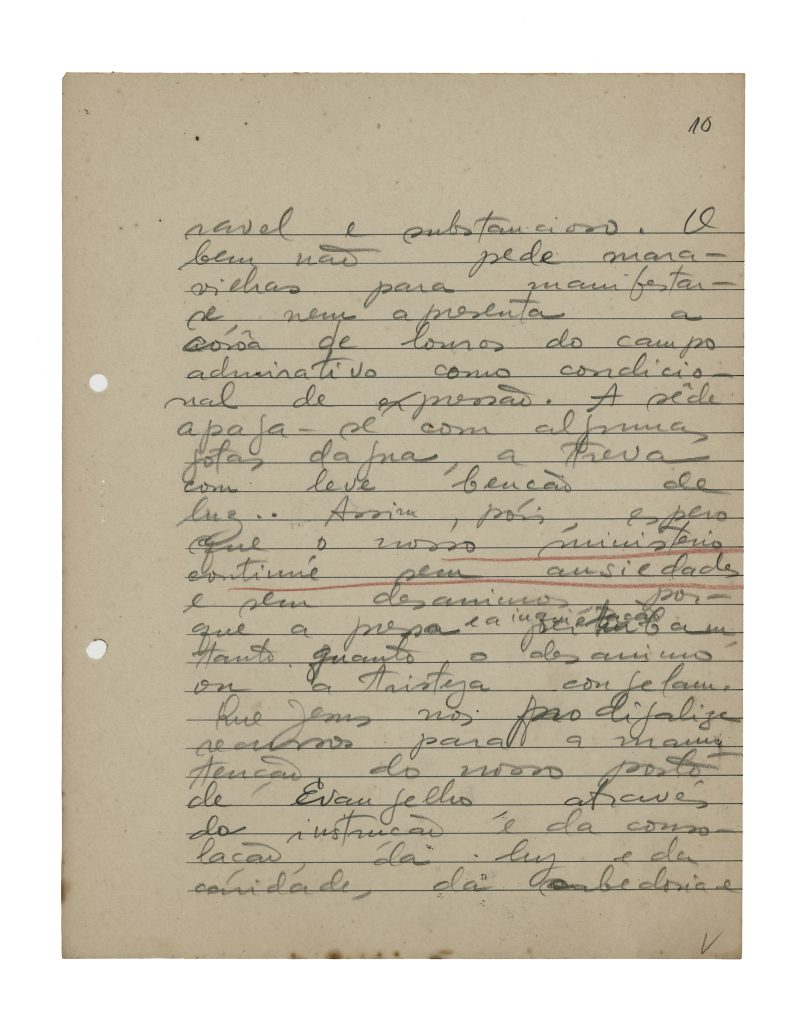 10
ravel e substancioso. O
bem não pede mara-
vilhas para manifestar-
se nem apresenta a
corôa de louros do campo
admirativo como condicio-
nal de expressão. A sêde
apaga-se com algumas
gotas dagua, a treva
com leve benção de
luz.. Assim, pois, espero
que o nosso ministério
continue sem ansiedades
e sem desanimos, por-
que a pressa e a inquietação
tanto quanto o desanimo
ou a tristeza congelam.
Que Jesus nos prodigalize
recursos para a manu-
tenção do nosso posto
de Evangelho através
da instrução e da conso-
lação, da luz e da
caridade, da sabedoria e
V